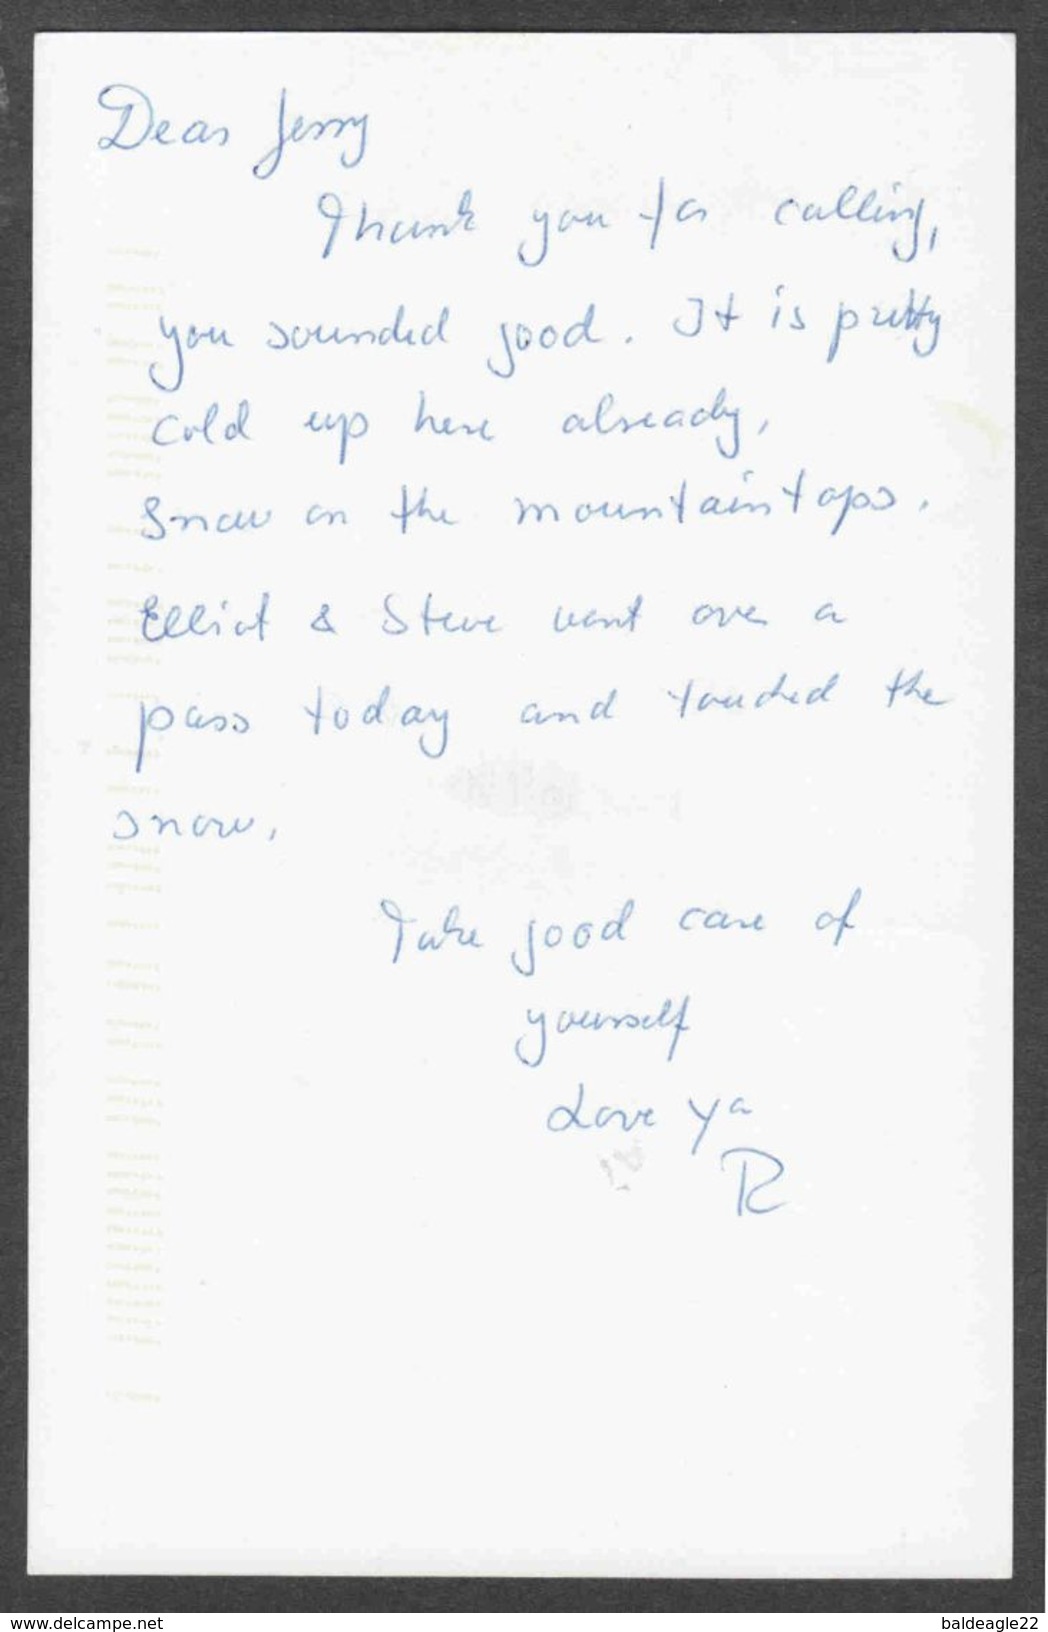 Dear Jerry
Thank you for calling,
you sounded good. It is pretty
cold up here already,
Snow on the mountaintops.
Elliot & Steve went over a
pass today and touched the
snow.
Take good care of
yourself
Love ya
R
www.delcampe.net
baldeagle22